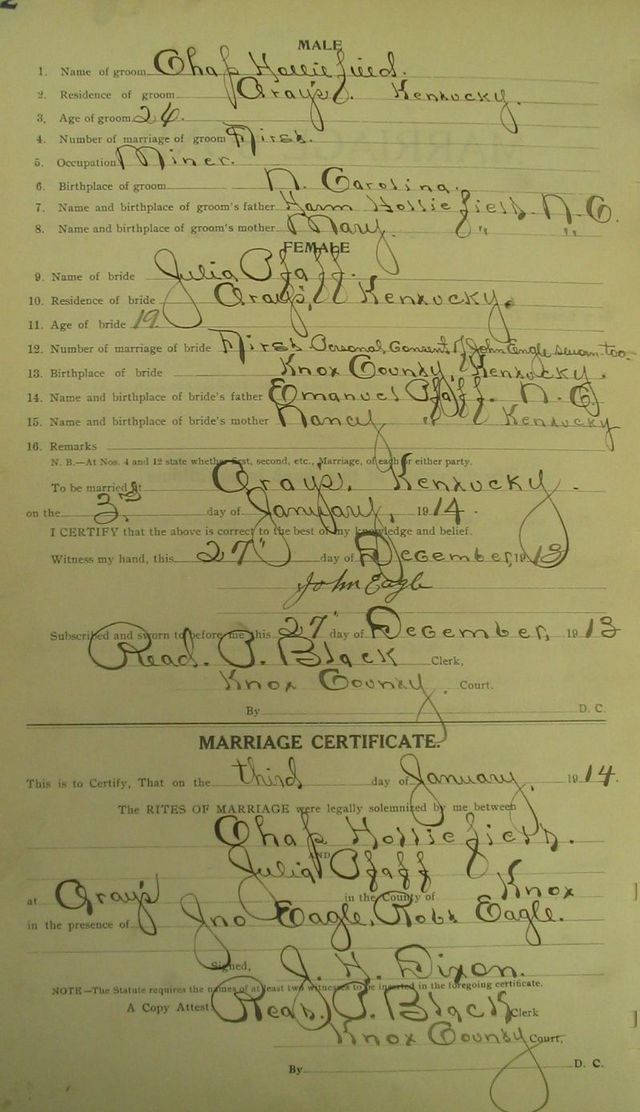 MALE
1. Name of groom Chas Holliefield.
2. Residence of groom Grays, Kentucky.
3. Age of groom 26.
4. Number of marriage of groom First.
5. Occupation Miner.
6. Birthplace of groom N. Carolina.
7. Name and birthplace of groom's father Harm Holliefield N.C.
8. Name and birthplace of groom's mother Mary. " "
FEMALE
9. Name of bride Julia Pfaff.
10. Residence of bride Grays, Kentucky.
11. Age of bride 19.
12. Number of marriage of bride First Personal Consent of John Engle sworn too.
13. Birthplace of bride Knox County, Kentucky.
14. Name and birthplace of bride's father Emanuel Pfaff. N.C.
15. Name and birthplace of bride's mother Nancy " Kentucky
16. Remarks
N. B.—At Nos. 4 and 12 state whether first, second, etc., Marriage, of each or either party.
To be married at Grays, Kentucky.
on the 3rd day of January, 1914.
I CERTIFY that the above is correct to the best of my knowledge and belief.
Witness my hand, this 27" day of December, 1913
John Eagle
Subscribed and sworn to before me this 27" day of December, 1913
Read. P. Black Clerk,
Knox County. Court.
By D. C.
MARRIAGE CERTIFICATE.
This is to Certify, That on the third day of January, 1914.
The RITES OF MARRIAGE were legally solemnized by me between
Chas Holliefield.
AND
Julia Pfaff
at Grays in the County of Knox
in the presence of Jno Eagle, Robt Eagle.
Signed, J. H. Dixon.
NOTE—The Statute requires the names of at least two witnesses to be inserted in the foregoing certificate.
A Copy Attest Read. P. Black Clerk
Knox County Court,
By D. C.